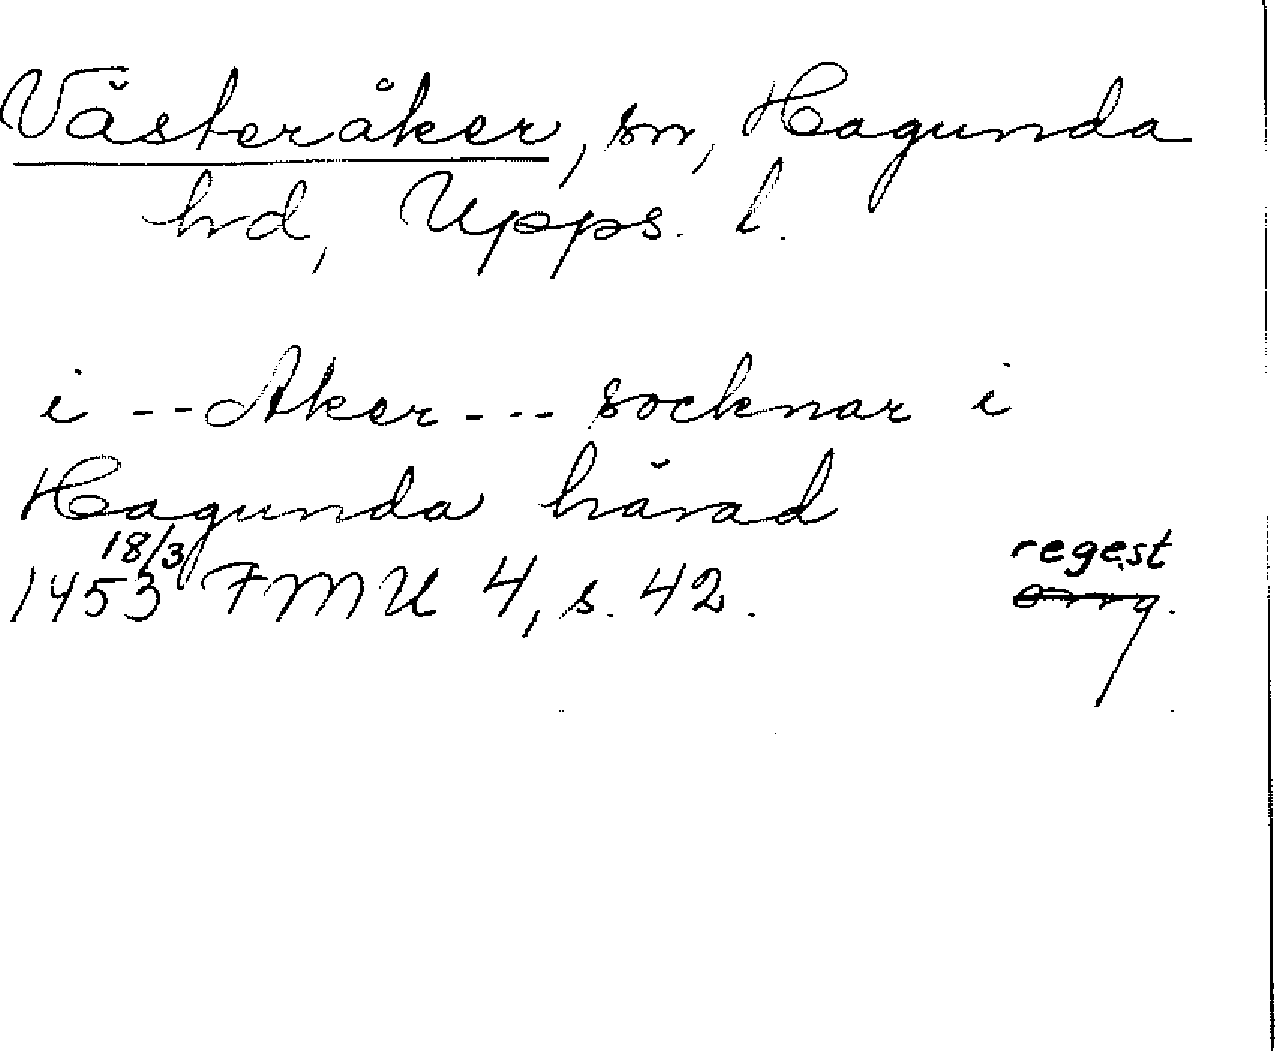 Västeråker, sn, Hagunda
hd, Upps. l.
i -- Aker --- socknar i
Hagunda härad
18/3 regest
1453 FMU 4, s. 42.